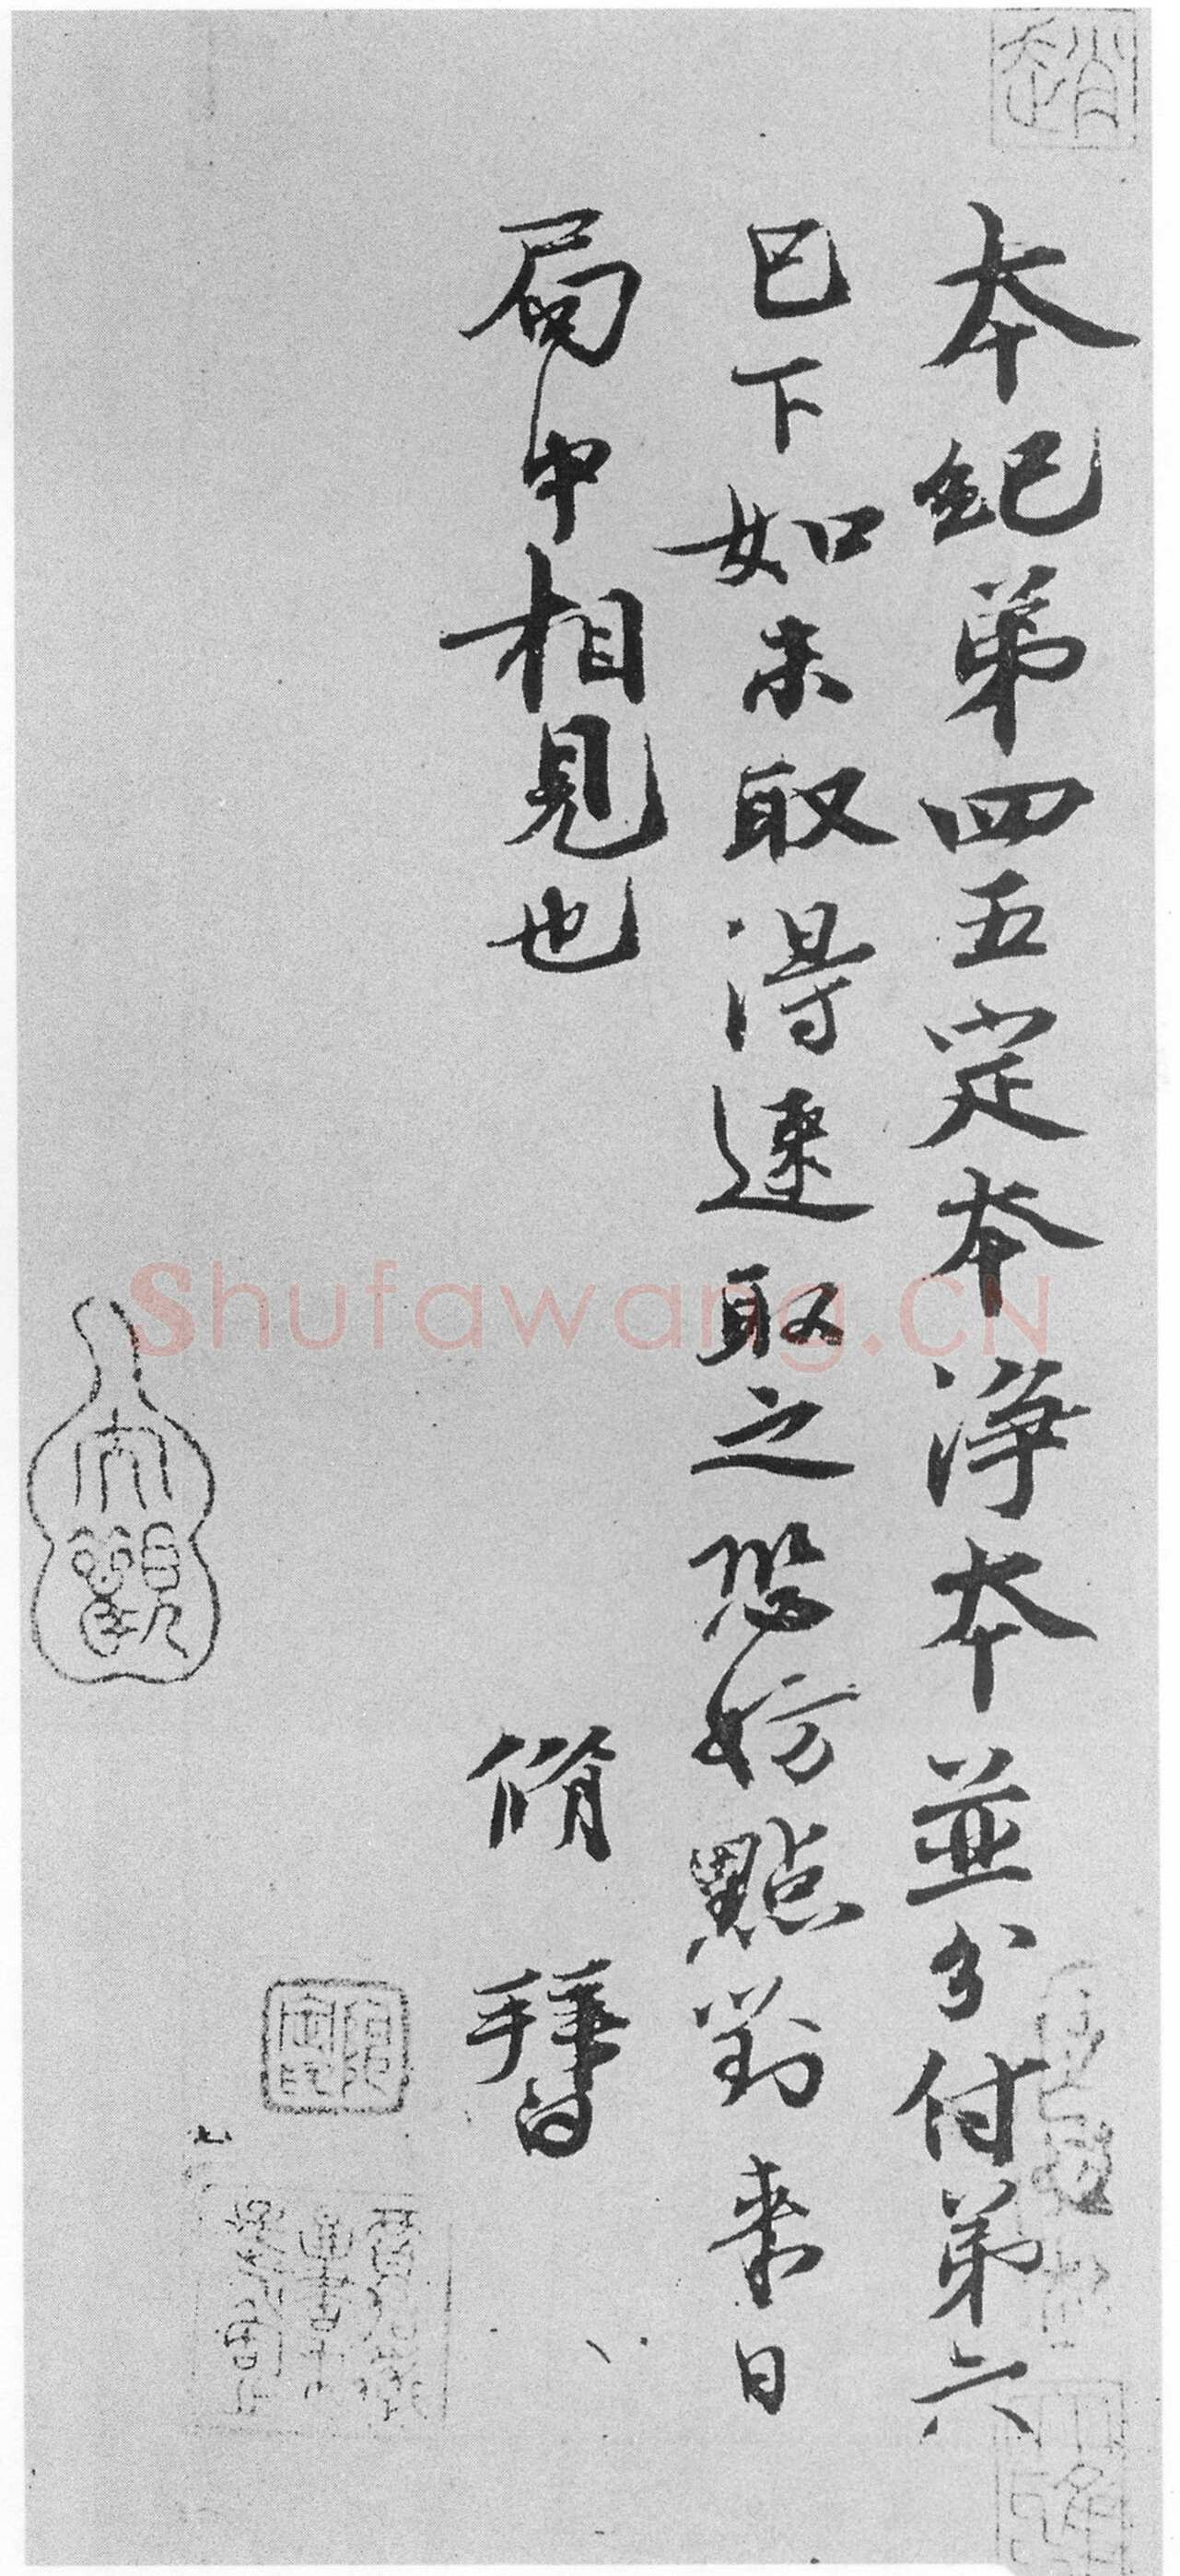 本紀弟四五定本淨本並分付弟六
已下如未取得速取之恐妨點對来日
局中相見也
脩 拜白
大觀
Shufawang.CN